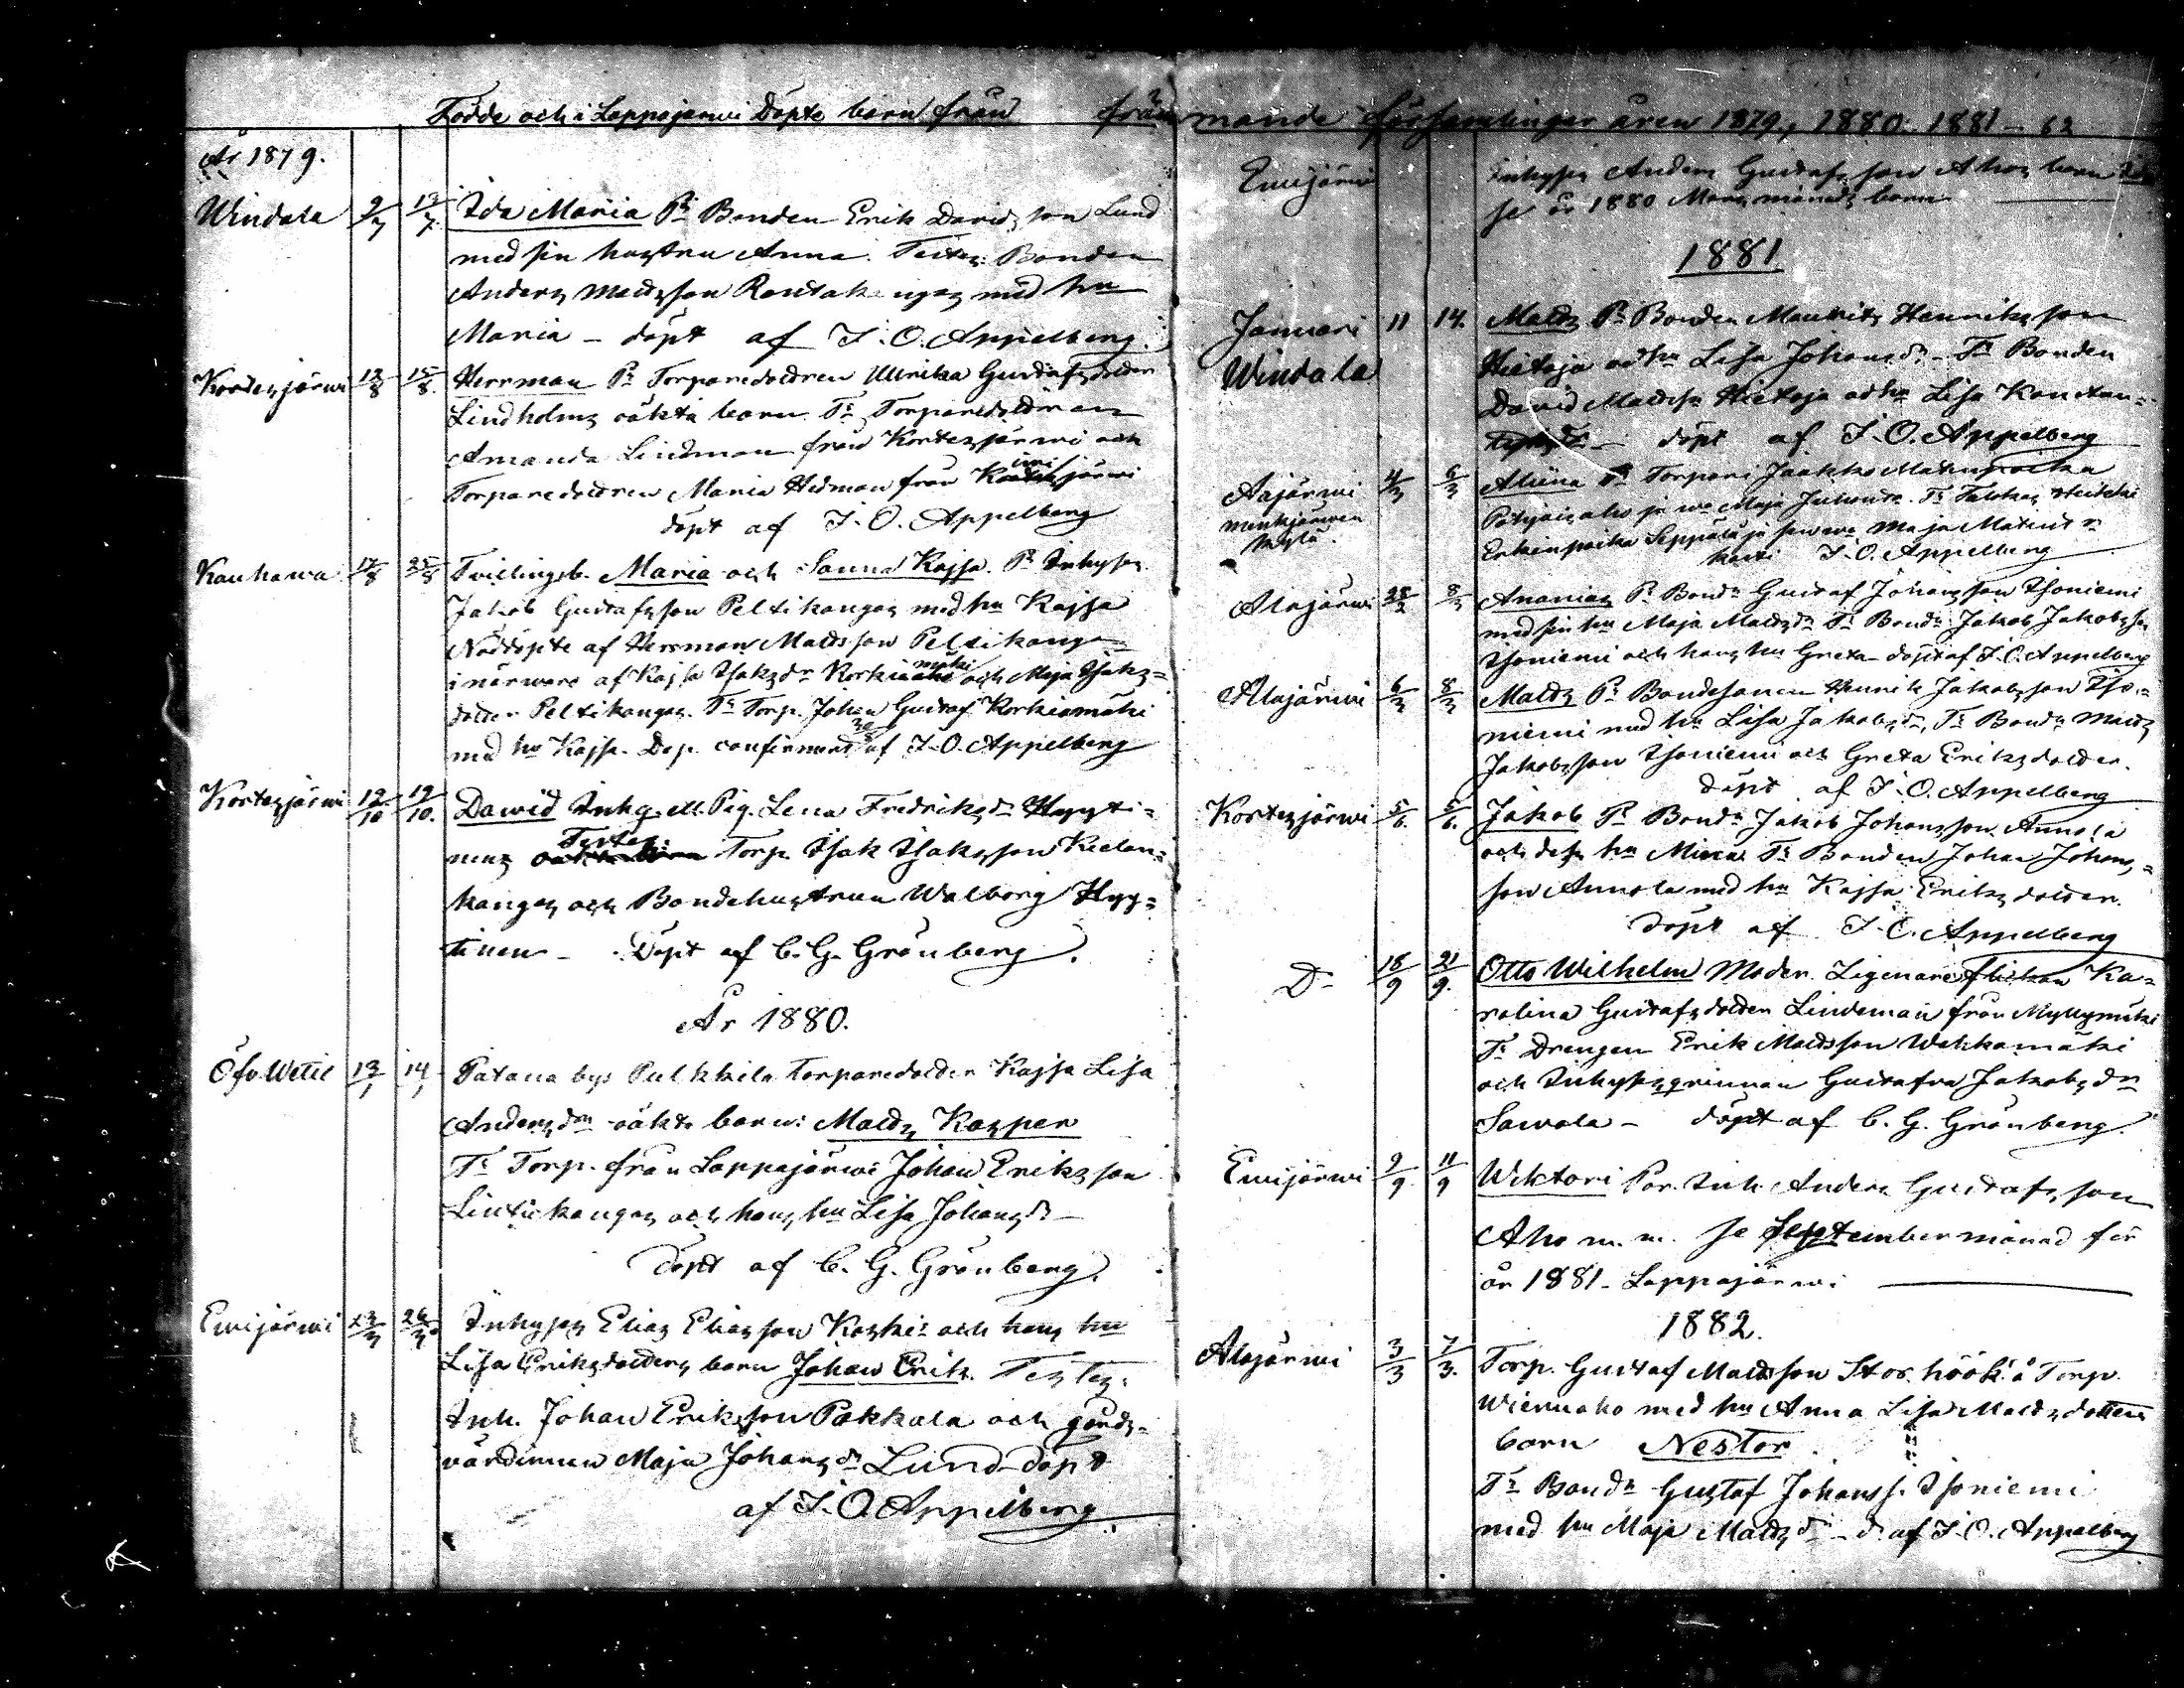 Födde och i Lappajärwi Döpte barn från främmande församlingar åren 1879, 1880. 1881 - 82
År 1879.
Windala 9/7 13/7. Ida Maria Pr Bonden Erik Davidsson Lund
med sin hustru Anna. Testes: Bonden
Anders Mattsson Rantakangas med hu
Maria - döpt af J. O. Appelberg.
Kortesjärwi 13/8 15/8. Herrman Pr Torparedottren Ulrika Gustafsdotter
Lindholms oäkta barn. Ts Torparedottren
Amanda Lindman från Kortesjärwi och
Torparedottren Maria Hedman från järwi
döpt af J. O. Appelberg
Kauhawa 17/8 25/8 Tvillingsb. Maria och Sanna Kajsa. Pr Inhyses
Jakob Gustafsson Peltikangas med hu Kajsa
Nöddöpte af Herrman Mattsson Peltikangas
i närwaro af Kajsa Isaksdr Korkiamäki och Maja Isaks=
dotter Peltikangas. Ts Torp. Johan Gustaf Korkiamäki
med hu Kajsa. Dop. confirmerat af J. O. Appelberg
Kortesjärwi 12/10 19/10. Dawid Inhg. ell. Pig. Lena Fredriksdr Hyyti=
nens Testes: Torp. Isak Isaksson Kielan=
kangas och Bondehustrun Walborg Hyy=
tinen - Döpt af C. G. Grönberg.
År 1880.
Öfv. Wetil 13/1 14/1 Patana bys Pulkkila Torparedotter Kajsa Lisa
Andersdrs oäkta barn: Matts Kasper
Ts Torp. från Lappajärwi Johan Eriksson
Lintukangas och hans hu Lisa Johansdr -
Döpt af C. G. Grönberg.
Ewijärwi 23/3 26/3. Inhyses Elias Eliasson Koski: och hans hu
Lisa Eriksdotters barn Johan Erik. Testes:
Inh. Johan Eriksson Pokkala och gårds=
värdinnan Maja Johansdr Lund - döpt
af J. O. Appelberg
Ewijärwi Inhyses Anders Gustafsson Ahos barn
se år 1880 Mars månads barn
1881
Januari 11 14. Matts Pr Bonden Mauritz Henriksson
Windala Hietoja och hu Lisa Johansdr - Ts Bonden
David Mattss. Hietoja och hu Lisa Konstan=
döpt af J. O. Appelberg
Alajärwi 4/3 6/3 Aliina Pr Torpari Jaakko Matinpoika
Menkijärwen kylä. Pohjoisaho ja wo Maja Juhontr. Ts Talokas Heikki
Erkinpoika Seppälä ja sen wo Maja Matintr
kasti J. O. Appelberg
Alajärwi 28/2 8/3 Ananias Pr Bondn Gustaf Johansson Isoniemi
med sin hu Maja Mattsdr Ts Bondn Jakob Jakobsson
Isoniemi och hans hu Greta - döpt af J. O. Appelberg
Alajärwi 6/3 8/3 Matts Pr Bondesonen Henrik Jakobsson Iso=
niemi med hu Lisa Jakobsdr, Ts Bondn Matts
Jakobsson Isoniemi och Greta Eriksdotter.
döpt af J. O. Appelberg
Kortesjärwi 5/6. 5/6. Jakob Pr Bondn Jakob Johansson Annola
och dess hu Mina. Ts Bonden Johan Johans=
son Annola med hu Kajsa Eriksdotter.
Döpt af J. O. Appelberg
Do 18/9 21/9. Otto Wilhelm Moder Zigenare flickan Ka=
rolina Gustafsdotter Lindeman från Myllymäki
Ts Drengen Erik Mattsson Wahkamäki
och Inhyseqvinnan Gustafva Jakobsdr
Sawola - döpt af C. G. Grönberg.
Ewijärwi 9/9 11/9 Wiktori Par. Inh. Anders Gustafsson
Aho m. m. se September månad för
år 1881 - Lappajärwi
1882.
Alajärwi 3/3 7/3. Torp. Gustaf Mattsson Storhöök å Torp.
Wiernaho med hu Anna Lisa Mattsdotters
barn Nestor.
Ts Bondn Gustaf Johanss. Isoniemi
med hu Maja Mattsdr - d. af J. O. Appelberg